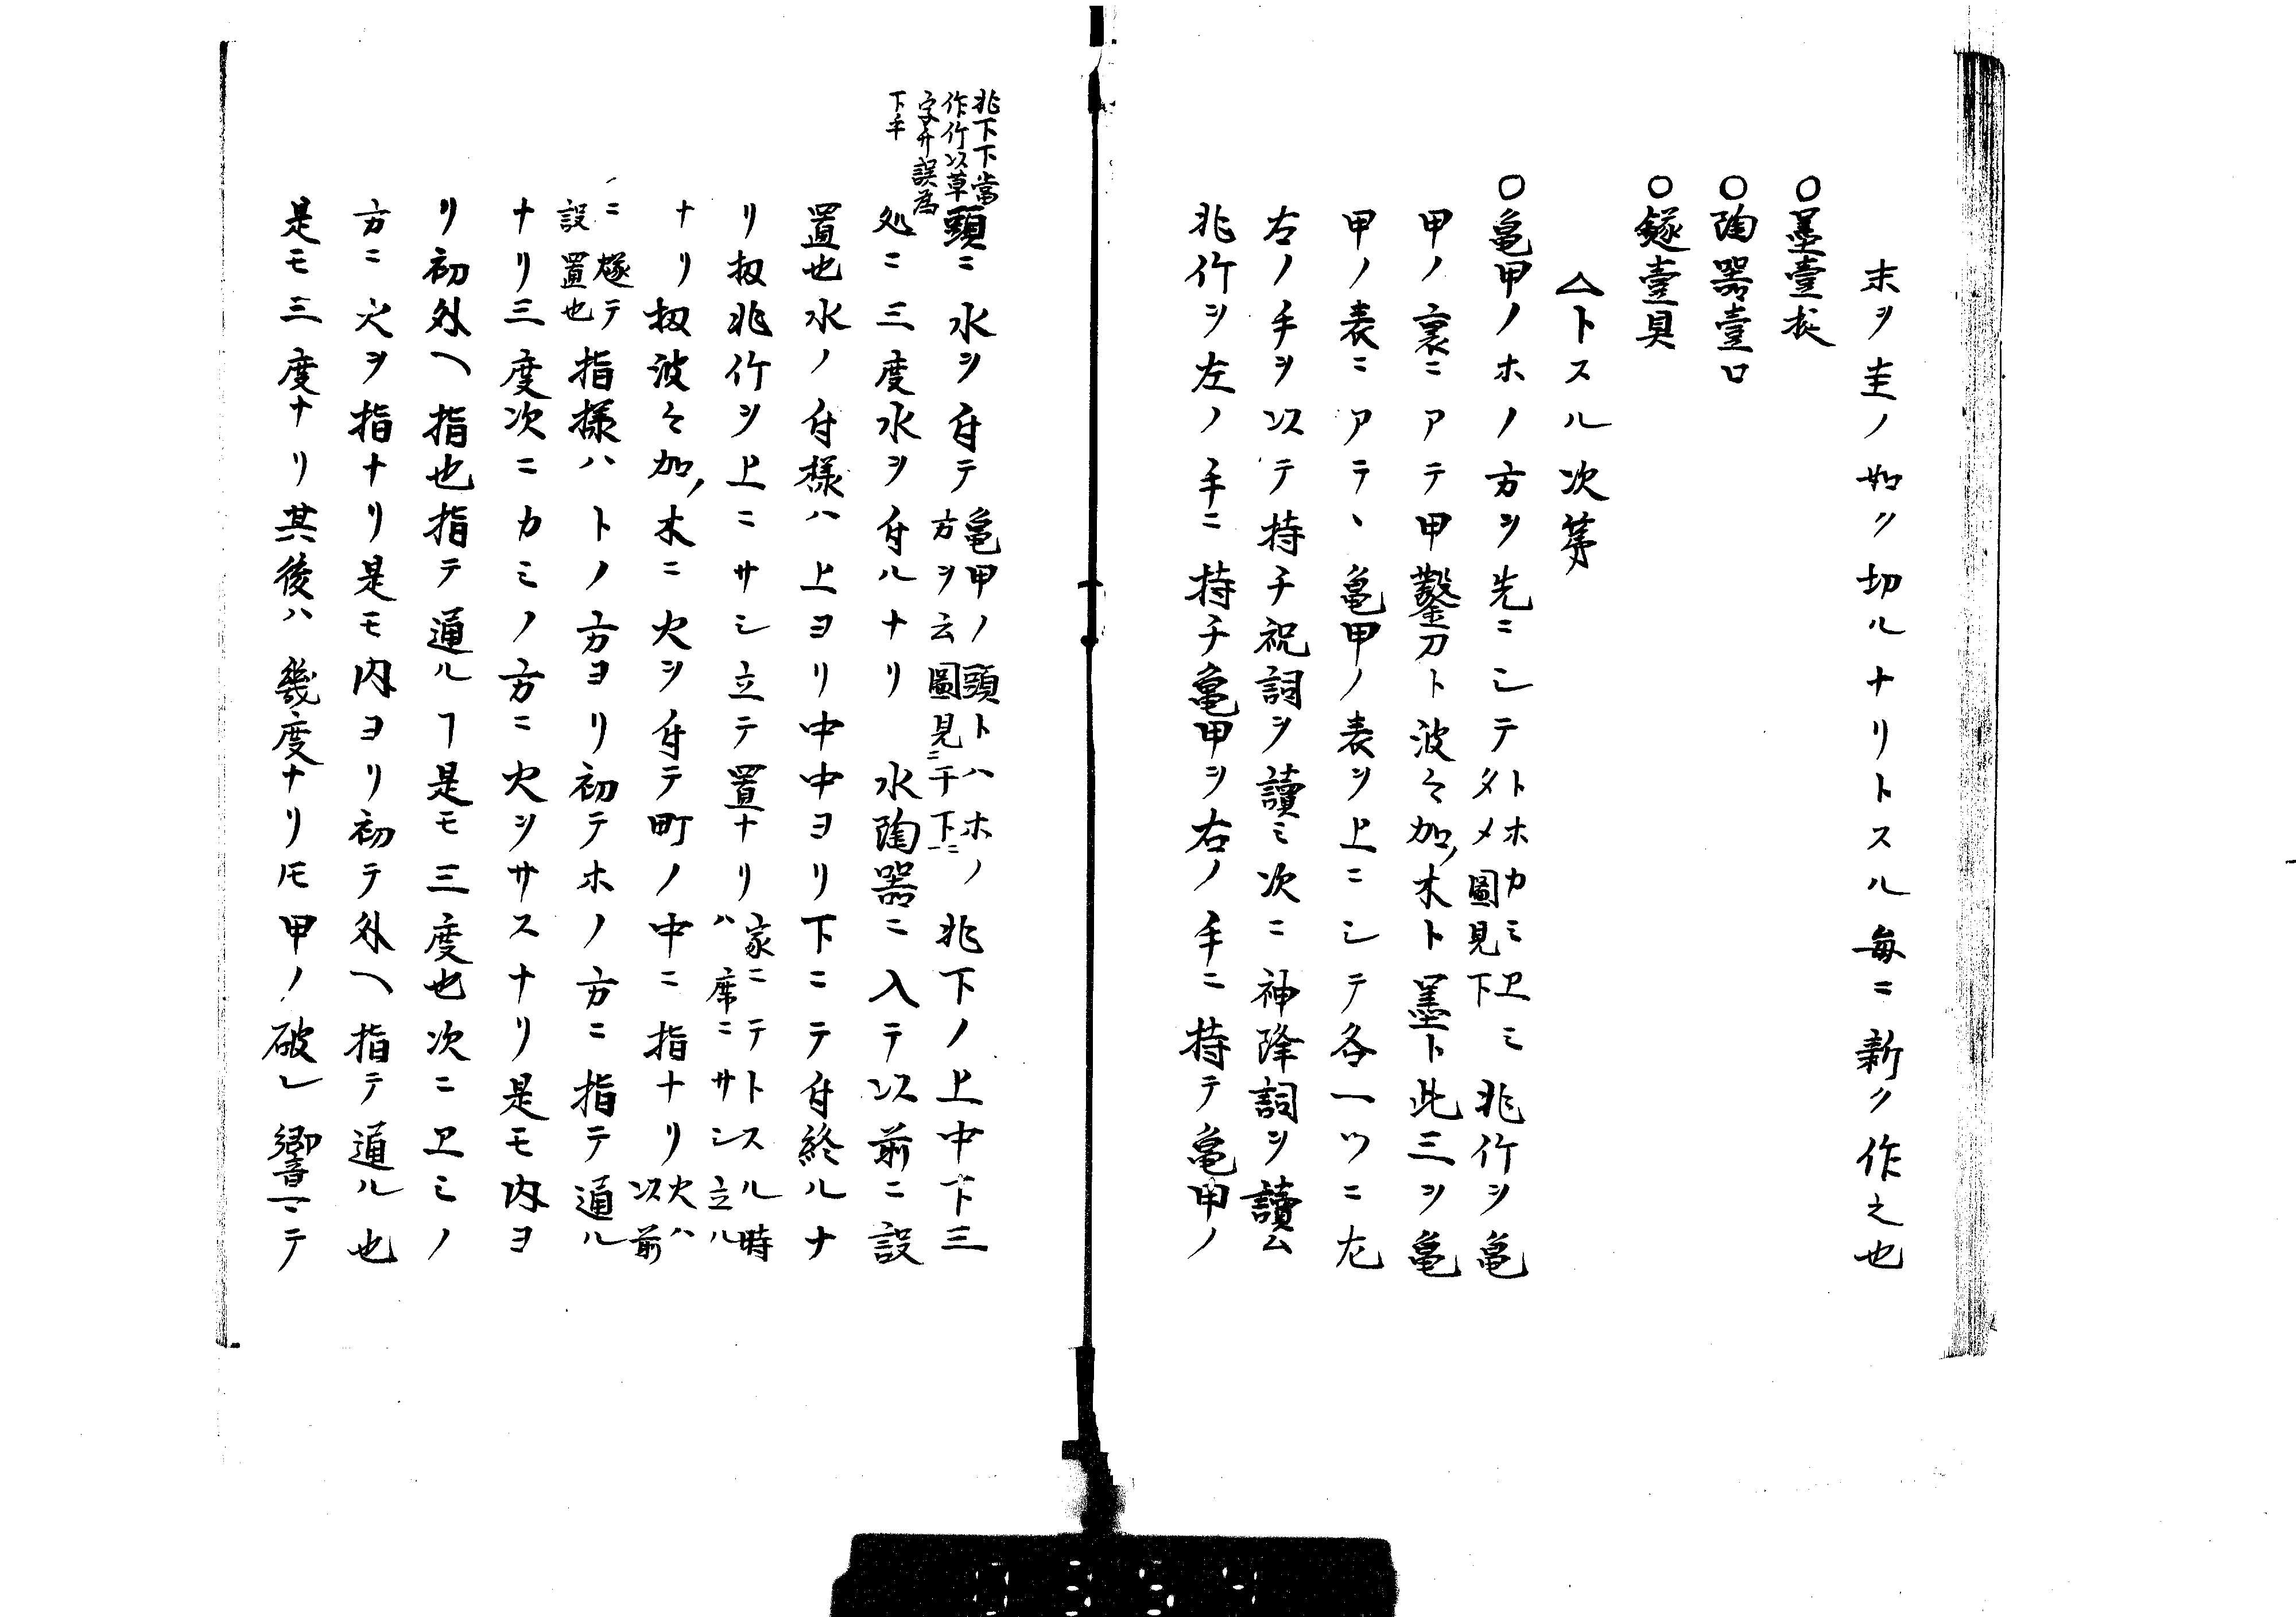 末ヲ圭ノ如ク切ルナリトスル毎ニ新ク作之也
○墨壹挺
○陶器壹口
○鐩壹具
△卜スル次第
○亀甲ノホノ方ヲ先ニシテトホカミヱミタメ圖見下兆竹ヲ亀
甲ノ裏ニアテ甲鑿刀ト波々加ノ木ト墨ト此三ヲ亀
甲ノ表ニアテヽ亀甲ノ表ヲ上ニシテ各一ツニ左
右ノ手ヲ以テ持チ祝詞ヲ讀ミ次ニ神降詞ヲ讀ム
兆竹ヲ左ノ手ニ持チ亀甲ヲ右ノ手ニ持テ亀甲ノ
兆下下當
作竹以草
字竹誤為
下乎
頭ニ水ヲ付テ亀甲ノ頭トハホノ方ヲ云圖見二于下一ニ兆下ノ上中下三
処ニ三度水ヲ付ルナリ水陶器ニ入テ以前ニ設
置也水ノ付様ハ上ヨリ中中ヨリ下ニテ付終ルナ
リ扨兆竹ヲ上ニサシ立テ置ナリ家ニテトスル時ハ席ニサシ立ル
ナリ扨波々加ノ木ニ火ヲ付テ町ノ中ニ指ナリ火ハ以前
ニ燧テ設置也指様ハトノ方ヨリ初テホノ方ニ指テ通ル
ナリ三度次ニカミノ方ニ火ヲサスナリ是モ内ヨ
リ初外ヘ指也指テ通ルヿ是モ三度也次ニヱミノ
方ニ火ヲ指ナリ是モ内ヨリ初テ外ヘ指テ通ル也
是モ三度ナリ其後ハ幾度ナリ𪜈甲ノ破レ響マテ